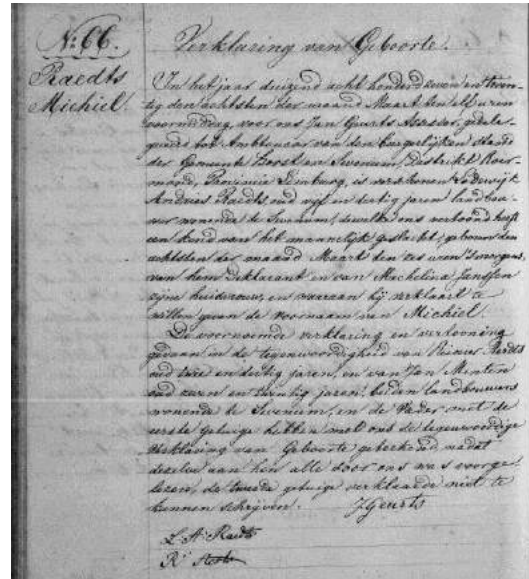 No: 66.
Raedts
Michiel.
Verklaring van Geboorte.
In het jaar duizend acht honderd zeven en twin-
tig den achtsten der maand Maart ten elf uren
voormiddag, voor ons Jan Geurts Assessor, gedele-
gueerd tot Ambtenaar van den burgerlijken stands
der Gemeente Horst en Sevenum, distrikt Roer-
monde, Provincie Limburg, is verschenen Lodewijk
Andries Raedts, oud vijf en dertig jaren landbou-
wer wonende te Sevenum, dewelke ons vertoond heeft
een kind van het mannelijk geslacht, geboren den
achtsten der maand Maart ten zes uren 's morgens,
van hem deklarant en van Mechelina Janssen
zijne huisvrouw, en waaraan hij verklaart te
willen geven de voornaam van Michiel.
De voornoemde verklaring en vertooning
gedaan in de tegenwoordigheid van Reiner Raedts
oud twee en dertig jaren, en van Jan Menten
oud zeven en twintig jaren, beiden landbouwers
wonende te Sevenum, en de Vader met de
eerste getuige hebben met ons de tegenwoordige
verklaring van Geboorte geteekend nadat
dezelve aan hen alle door ons was voorge-
lezen, de tweede getuige verklaarde niet te
kunnen schrijven. J Geurts
L A Raedts
R